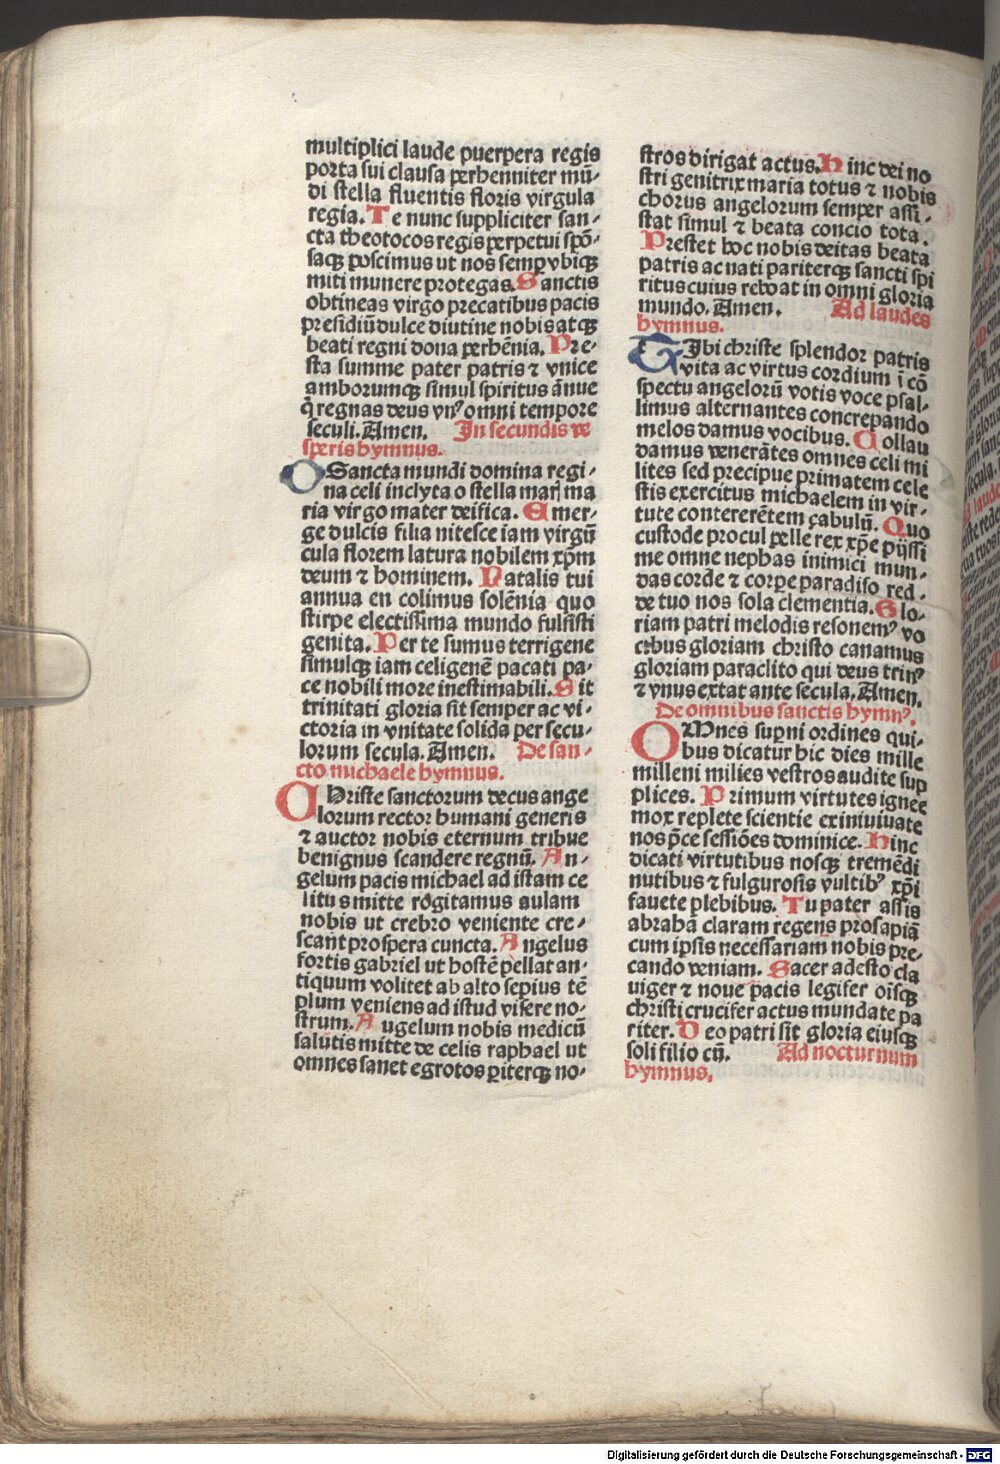 multiplici laude puerpera regis
porta sui clausa perhenniter mū-
di stella fluentis floris virgula
regia. Te nunc suppliciter san-
cta theotocos regis perpetui spō-
saqꝫ poscimus ut nos semꝑ vbiqꝫ
miti munere protegas. Sanctis
obtineas virgo precatibus pacis
presidiū dulce diutine nobis atqꝫ
beati regni dona perhēnia. Pre-
sta summe pater patris ⁊ vnice
amborumqꝫ simul spiritus ānue
q̇ regnas deus vnꝰ omni tempore
seculi. Amen. In secundis ve
speris hymnus.
O Sancta mundi domina regi-
na celi inclyta o stella marꝭ ma
ria virgo mater deifica. Emer-
ge dulcis filia nitesce iam virgū
cula florem latura nobilem xp̄m
deum ⁊ hominem. Natalis tui
annua en colimus solēnia quo
stirpe electissima mundo fulsisti
genita. Per te sumus terrigene
simulqꝫ iam celigenē pacati pa-
ce nobili more inestimabili. Sit
trinitati gloria sit semper ac vi-
ctoria in vnitate solida per secu-
lorum secula. Amen. De san-
cto michaele hymnus.
CHriste sanctorum decus ange
lorum rector humani generis
⁊ auctor nobis eternum tribue
benignus scandere regnū. An-
gelum pacis michael ad istam ce
litus mitte rogitamus aulam
nobis ut crebro veniente cre-
scant prospera cuncta. Angelus
fortis gabriel ut hostē pellat an-
tiquum volitet ab alto sepius tē
plum veniens ad istud visere no-
strum. Augelum nobis medicū
salutis mitte de celis raphael ut
omnes sanet egrotos ꝑiterqꝫ no-
stros dirigat actus. Hinc dei no
stri genitrix maria totus ⁊ nobis
chorus angelorum semper assi-
stat simul ⁊ beata concio tota.
Prestet hoc nobis deitas beata
patris ac nati pariterqꝫ sancti spi
ritus cuius reboat in omni gloria
mundo. Amen. Ad laudes
hymnus.
TIbi christe splendor patris
vita ac virtus cordium ī cō
spectu angelorū votis voce psal-
limus alternantes concrepando
melos damus vocibus. Collau
damus venerātes omnes celi mi
lites sed precipue primatem cele
stis exercitus michaelem in vir-
tute conterentem zabulū. Quo
custode procul pelle rex xp̄e pijssi
me omne nephas inimici mun-
das corde ⁊ corpe paradiso red-
de tuo nos sola clementia. Glo-
riam patri melodis resonemꝰ vo
cibus gloriam christo canamus
gloriam paraclito qui deus trinꝰ
⁊ vnus extat ante secula. Amen.
De omnibus sanctis hymnꝰ.
OMnes suꝑni ordines qui-
bus dicatur hic dies mille
milleni milies vestros audite sup
plices. Primum virtutes ignee
mox replete scientie exin iuiuate
nos pn̄ce sessiōes dominice. Hinc
dicati virtutibus nosqꝫ tremēdi
nutibus ⁊ fulgurosis vultibꝰ xp̄i
fauete plebibus. Tu pater assis
abrahā claram regens prosapiā
cum ipsis necessariam nobis pre-
cando veniam. Sacer adesto cla
uiger ⁊ noue pacis legifer oīsqꝫ
christi crucifer actus mundate pa
riter. Deo patri sit gloria eiusqꝫ
soli filio cū. Ad nocturnum
hymnus.
Digitalisierung gefördert durch die Deutsche Forschungsgemeinschaft - DFG